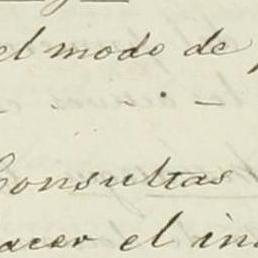 el modo de
Consultas
acer el in